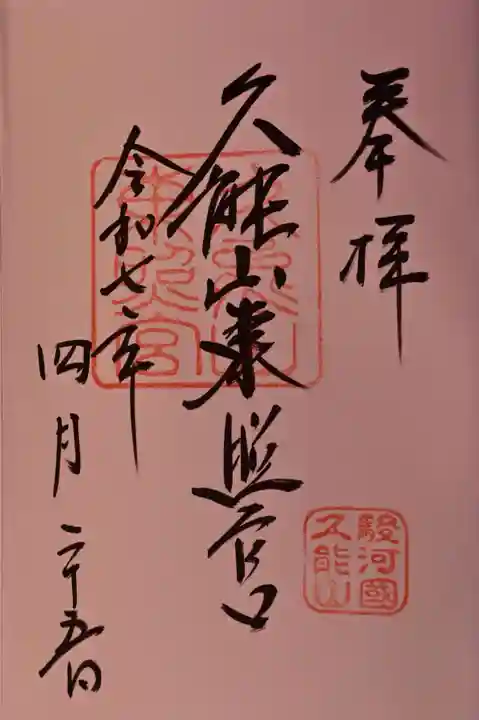 奉拝
駿河國
久能山
久能山東照宮
令和七年
四月二十五日